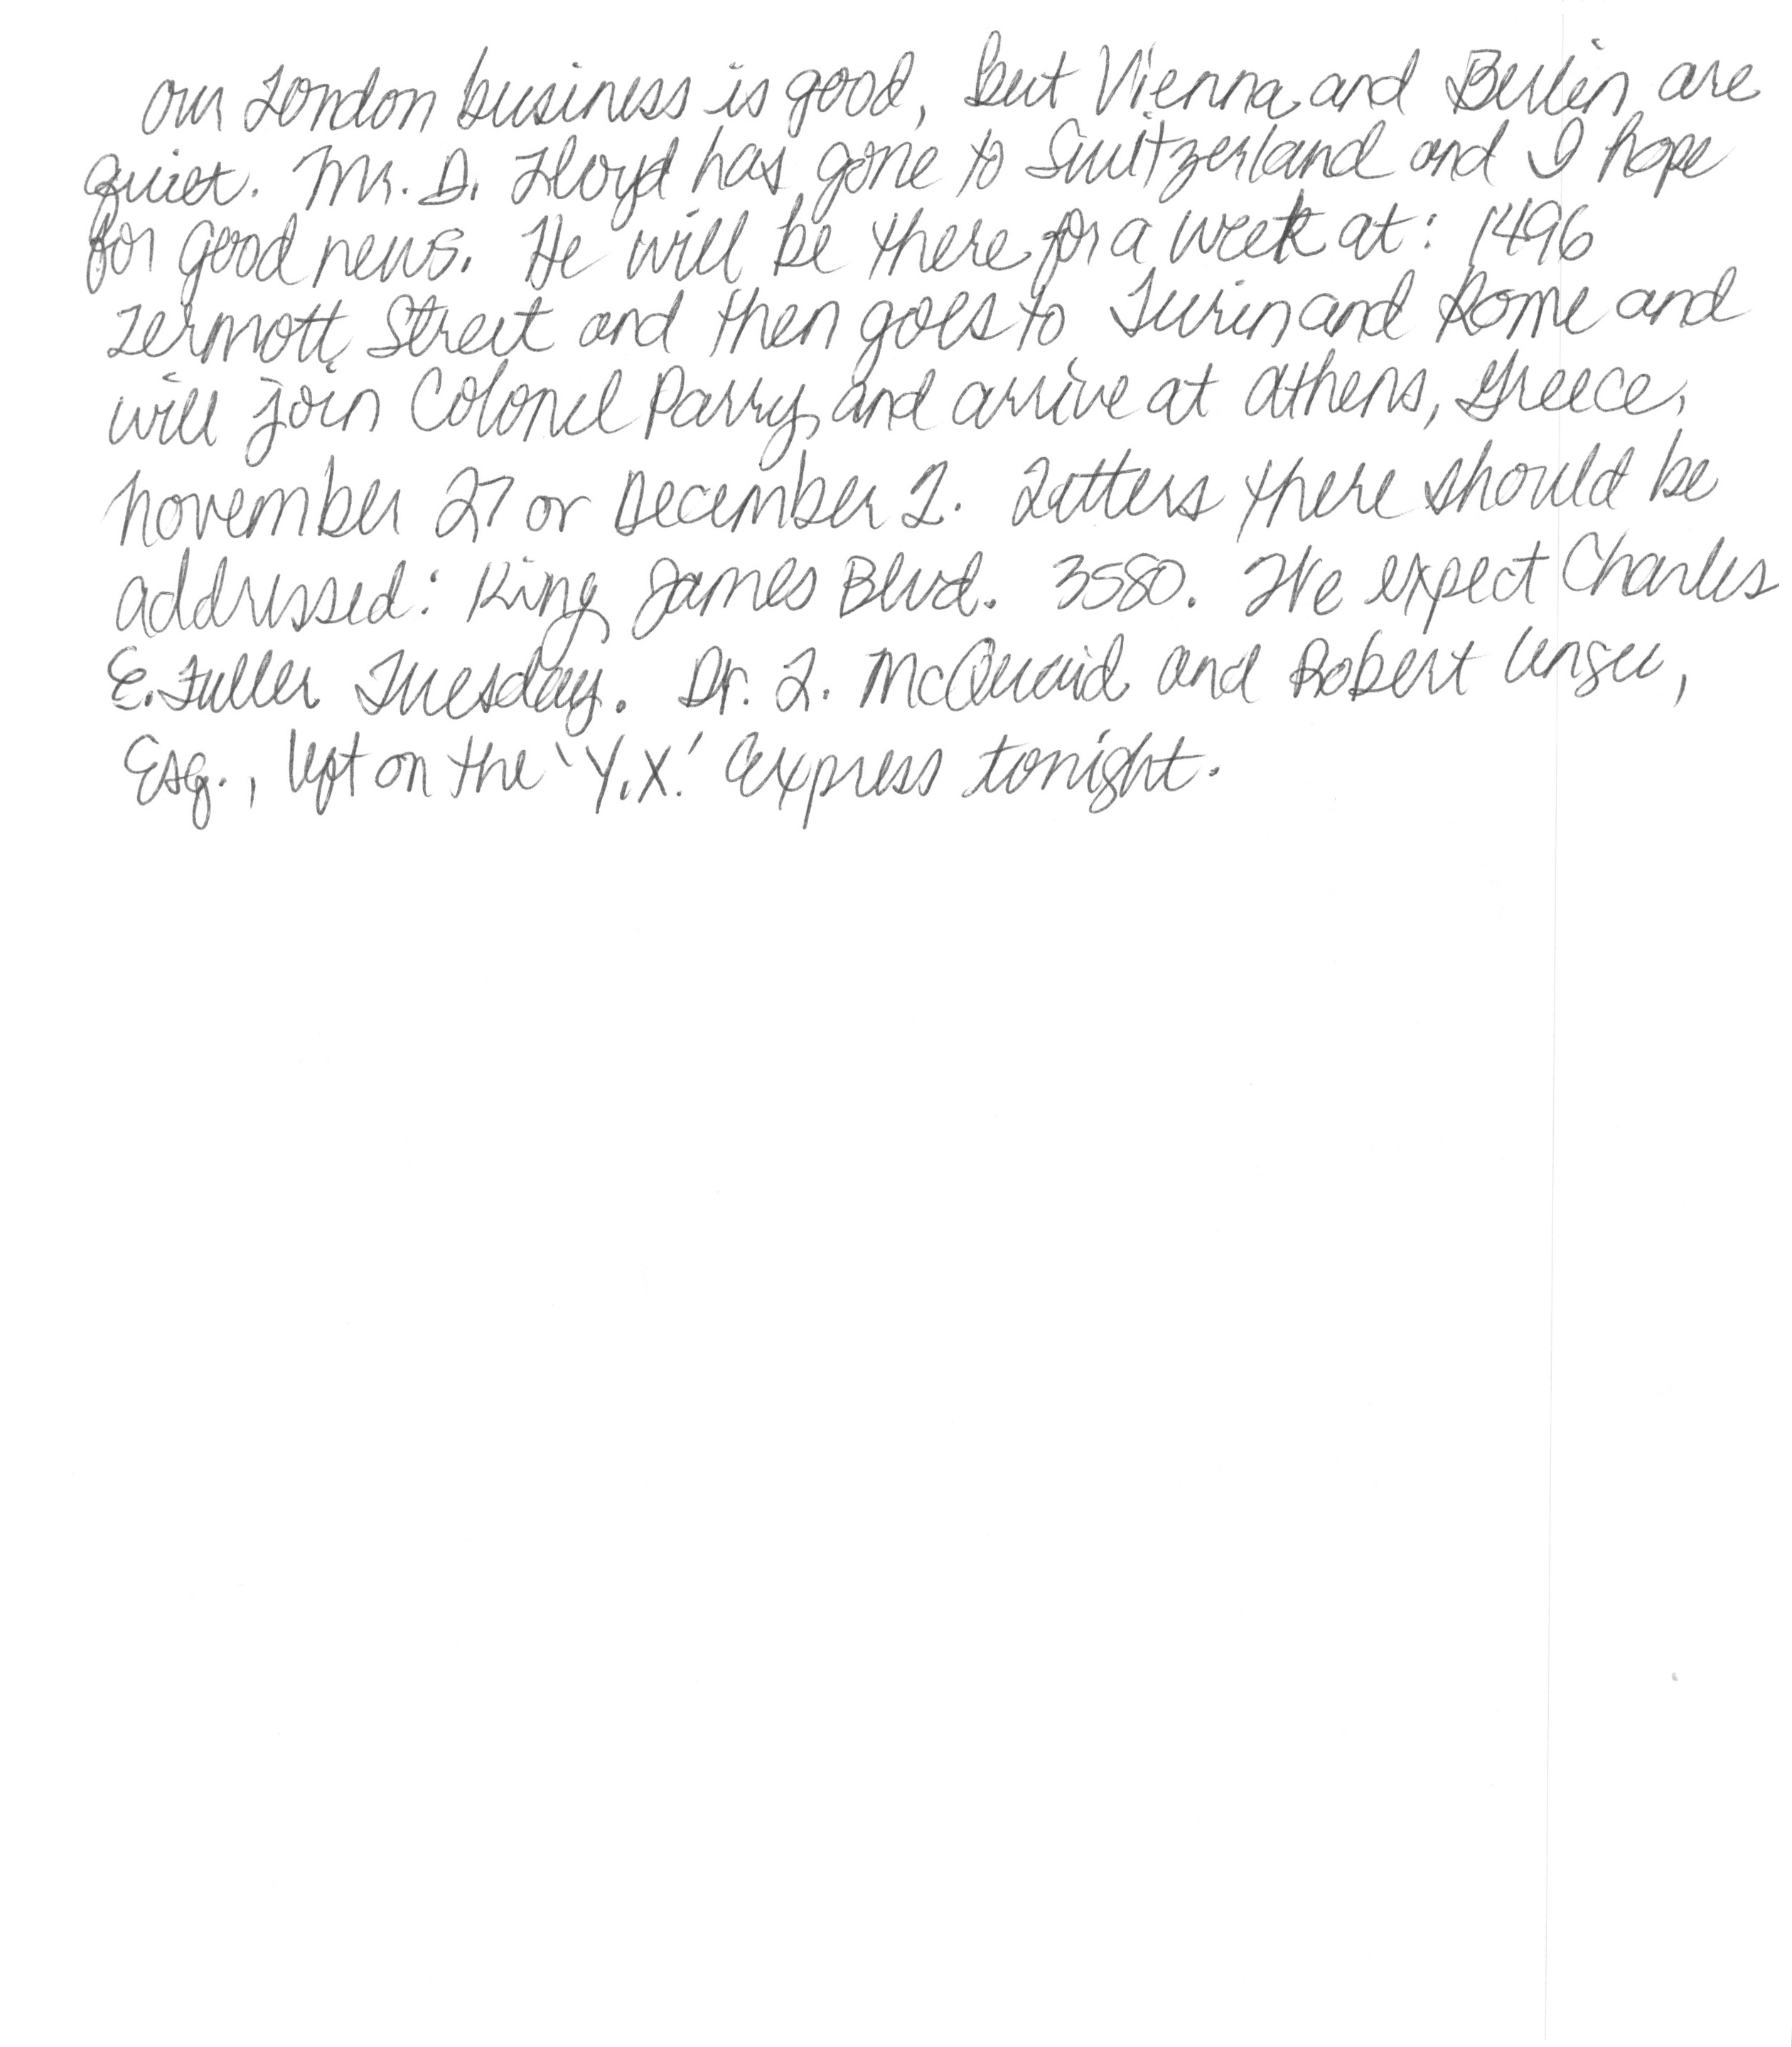 Our London business is good, but Vienna and Berlin are
quiet. Mr. D. Lloyd has gone to Switzerland and I hope
for good news. He will be there for a week at: 1496
Zermott Street and then goes to Turin and Rome and
will join Colonel Parry and arrive at Athens, Greece,
November 27 or December 2. Letters there should be
addressed: King James Blvd. 3580. We expect Charles
E. Fuller Tuesday. Dr. L. McQuaid and Robert Unger,
Esq., left on the 'Y.X.' Express tonight.